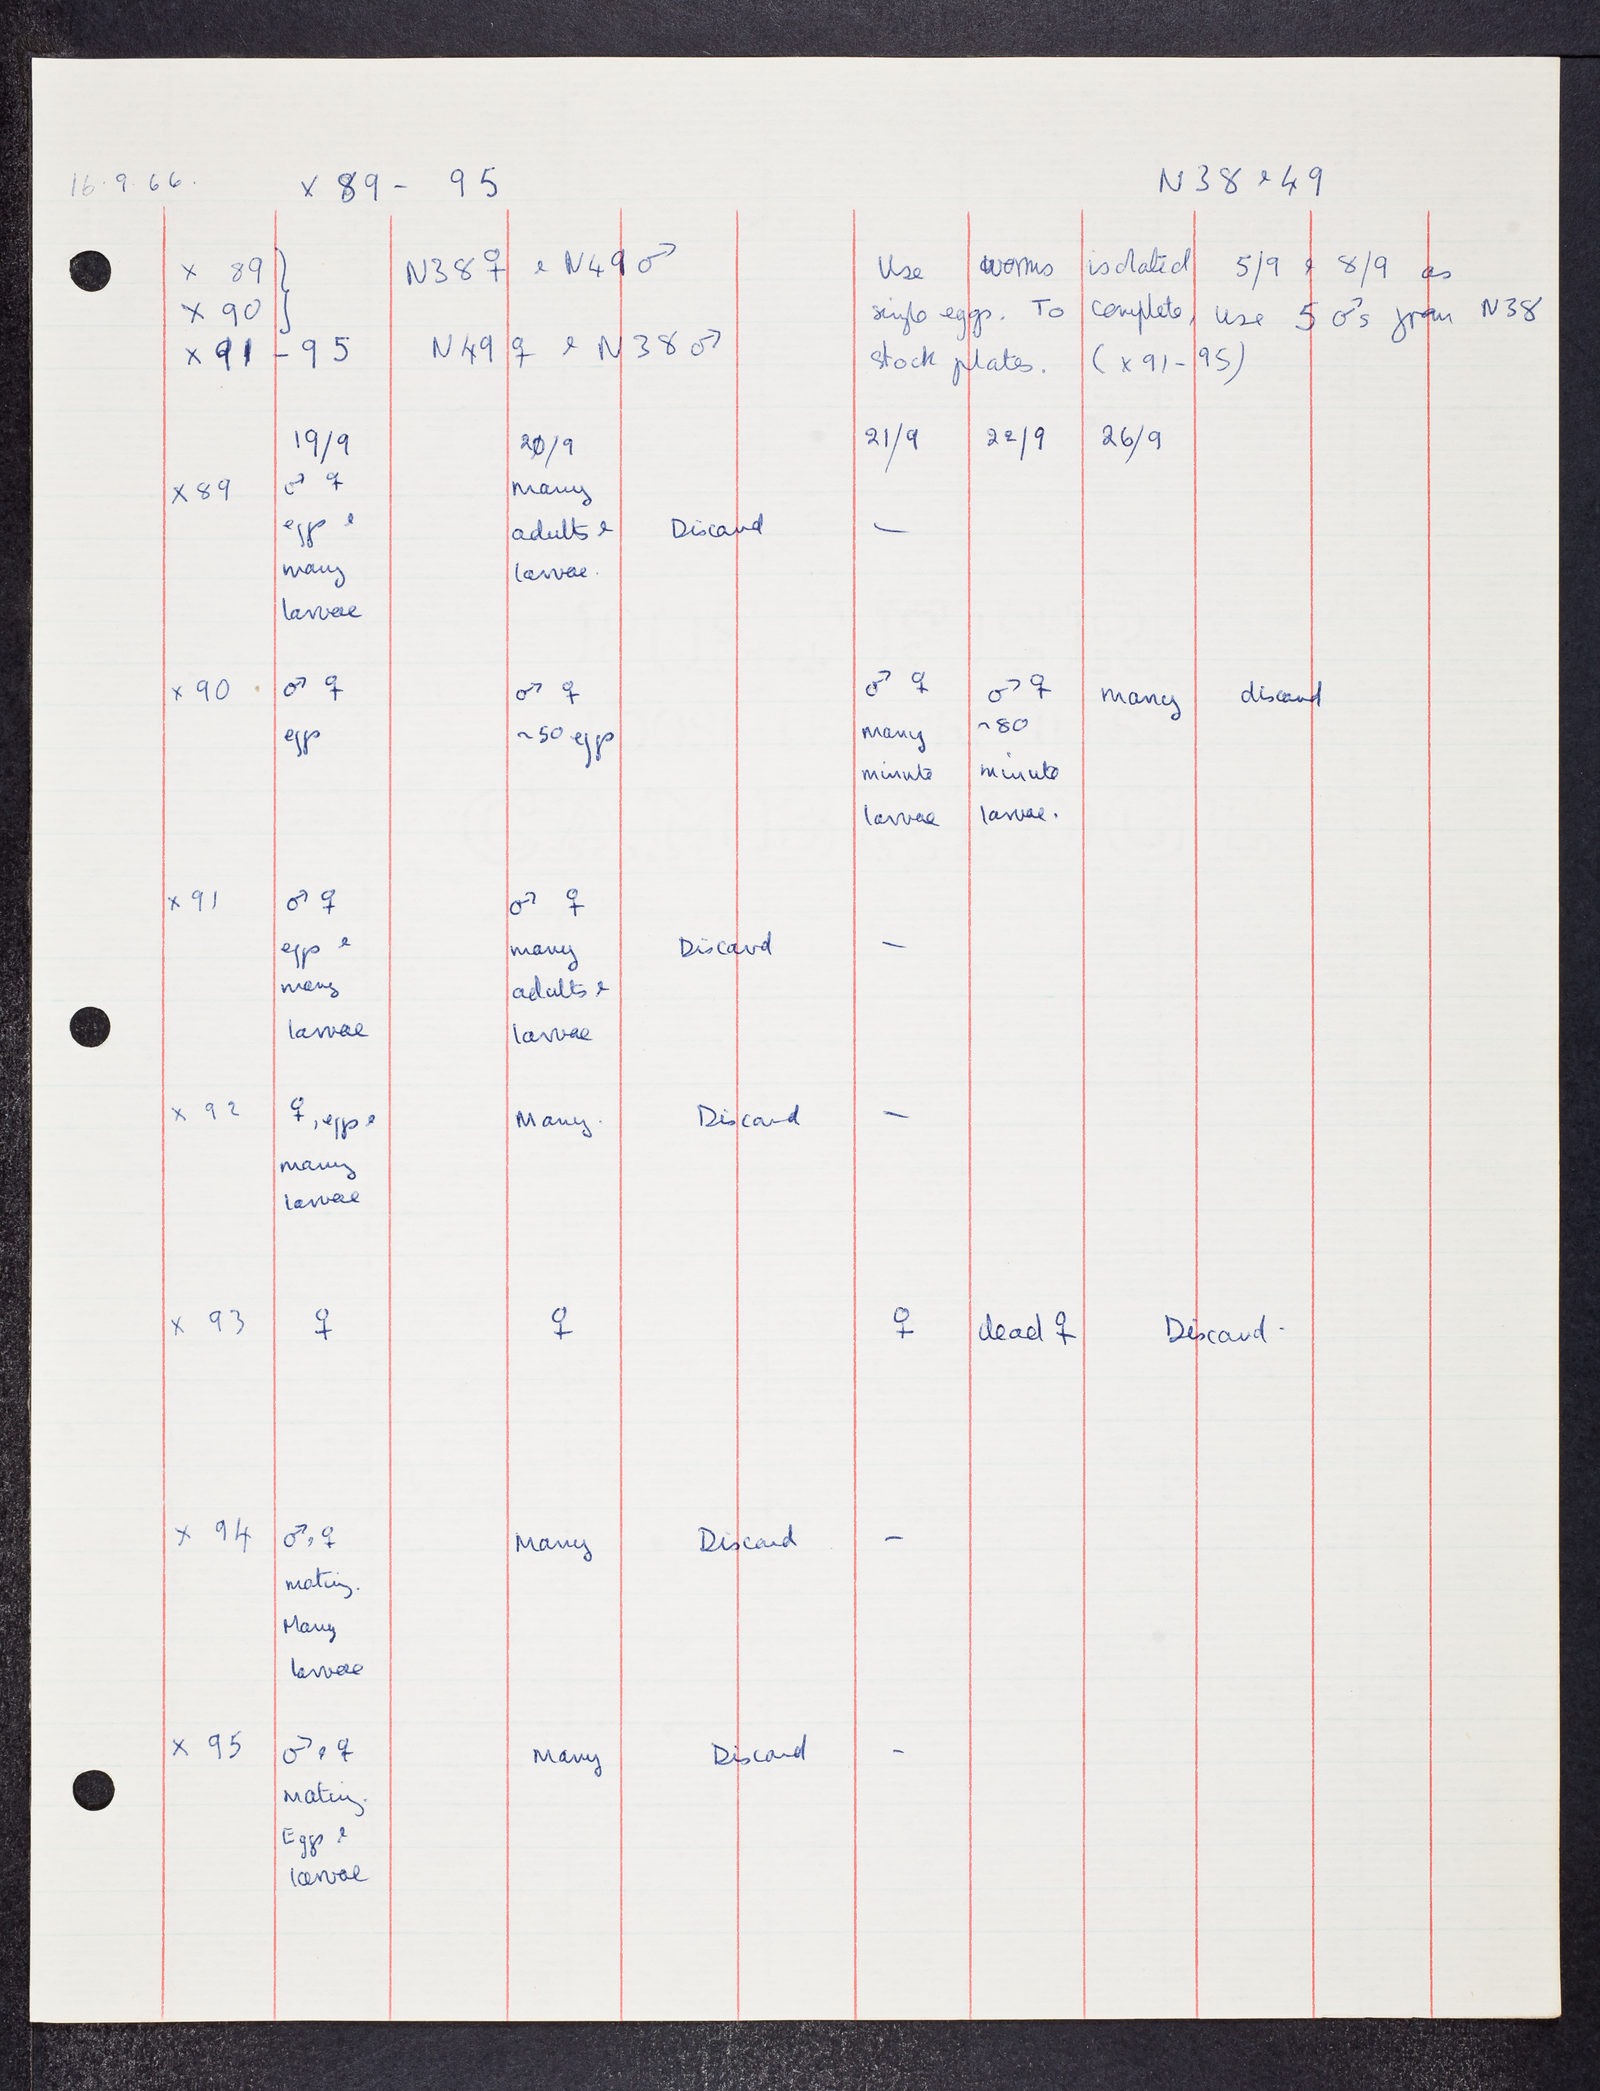 16.9.66. x 89 - 95 N38 & 49
x 89 } N38 ♀ & N49 ♂ Use worms isolated 5/9 & 8/9 as
x 90 } single eggs. To complete, use 5 ♂s from N38
x 91 - 95 N49 ♀ & N38 ♂ stock plates. (x 91 - 95)
19/9 20/9 21/9 22/9 26/9
x 89 ♂ ♀ many
eggs & adults & Discard —
many larvae.
larvae
x 90 ♂ ♀ ♂ ♀ ♂ ♀ ♂ ♀ many discard
eggs ~50 eggs many ~80
minute minute
larvae larvae.
x 91 ♂ ♀ ♂ ♀
eggs & many Discard —
many adults &
larvae larvae
x 92 ♀, eggs & Many. Discard —
many
larvae
x 93 ♀ ♀ ♀ dead ♀ Discard.
x 94 ♂, ♀ Many Discard —
mating.
Many
larvae
x 95 ♂ & ♀ Many Discard -
Mating.
Eggs &
larvae